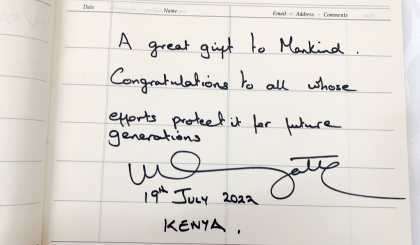 Date Name Email - Address - Comments
A great gift to Mankind.
Congratulations to all whose
efforts protect it for future
generations
19th JULY 2022
KENYA.